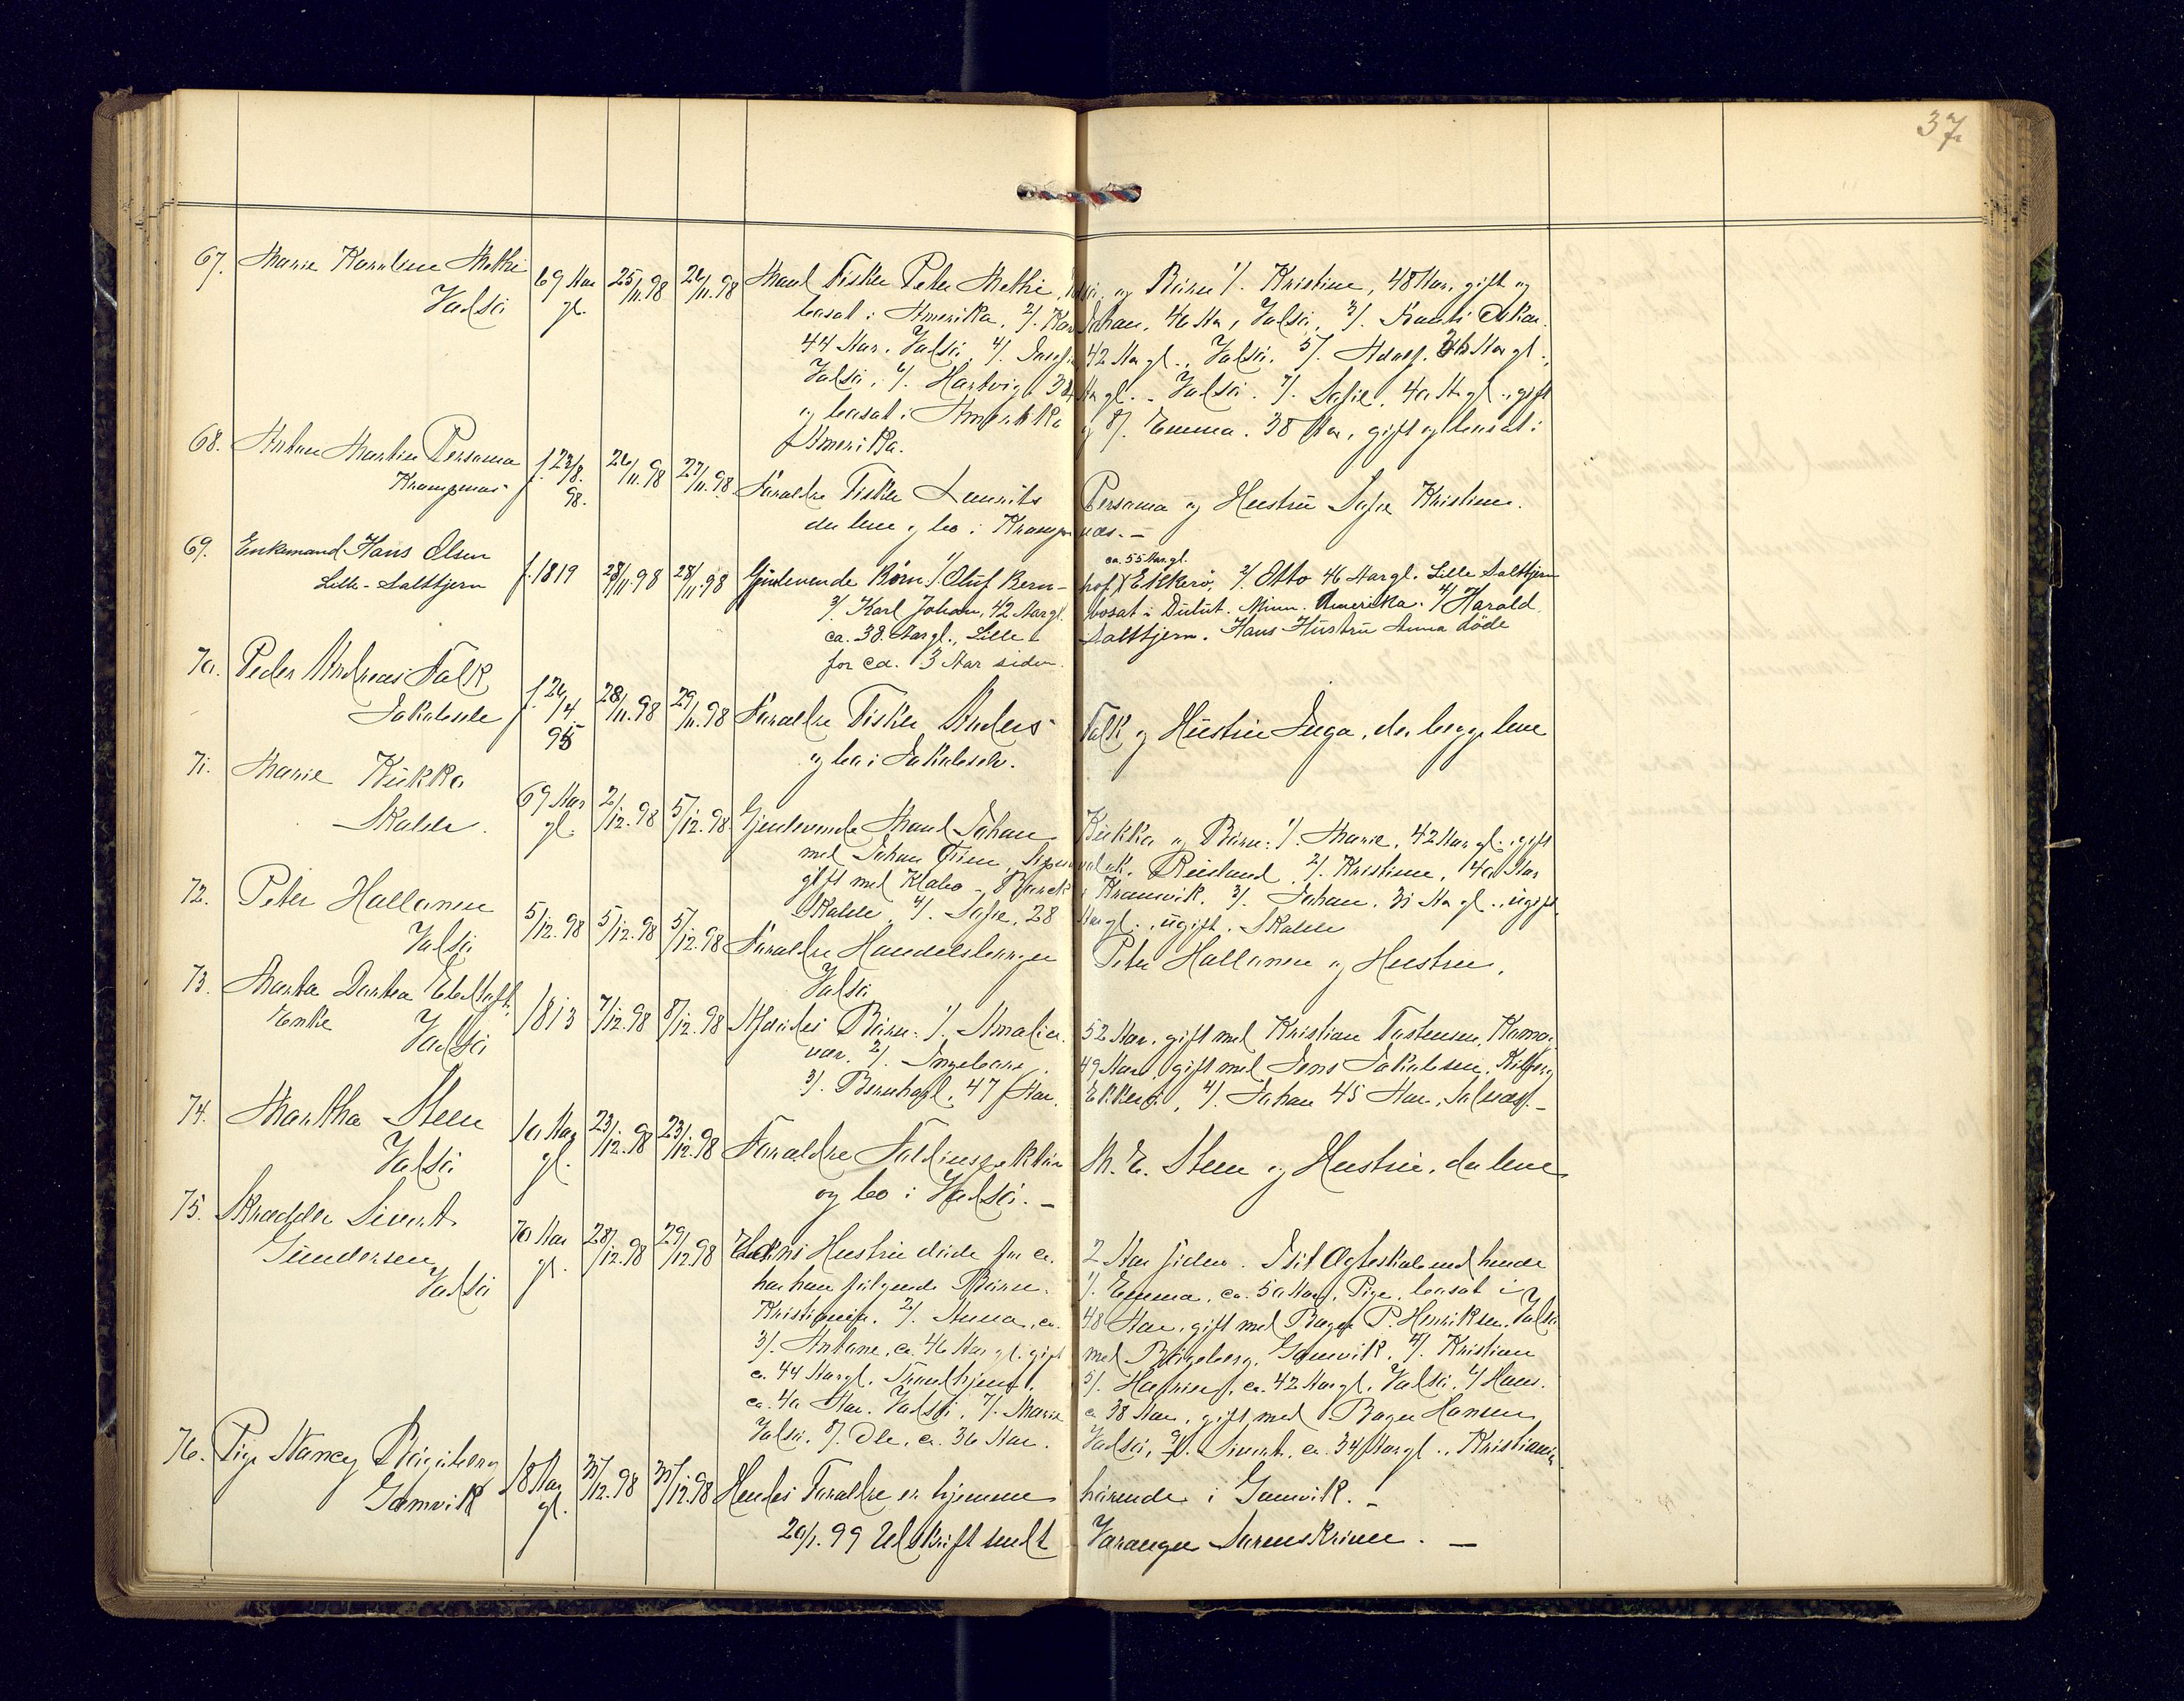 37.
67. Marie Karoline Mathi 69 Aar 25/11.98 26/11.98 Mand Fisker Peter Mathi, Vadsö, og Börn 1/. Kristine, 48 Aar, gift og
Vadsö gl. bosat i Amerika, 2/. Karl Johan, 46 Aar, Vadsö, 3/. Oskar.
44 Aar. Vadsö, 4/. 42 Aar gl., Vadsö. 5/. Adolf. 36 Aar gl.,
Vadsö, 6/. Hartvig 34 Aar gl. - Vadsö. 7/. Sofie, 40 Aar gl., gift
og bosat i Amerika og 8/. Emma. 38 Aar, gift og bosat i
Amerika.
68. Anton Martin Persama f. 23/8. 98. 26/11.98 27/11.98. Foraldre Fisker Laurits Persama og Hustru Sofie Kristine.
Krampenæs der leve og bo i Krampenæs. -
69. Enkemand Hans Olsen f. 1819 28/11 98 28/11 98 Gjenlevende Börn 1/. Oluf Bernhof ca. 55 Aar gl. Ekkerö, 2/. Otto 46 Aar gl. Lille Salttjern
Lille-Salttjern 3/. Karl Johan, 42 Aar gl. bosat i Dulut. Minn. Amerika. 4/ Harald
ca. 38 Aar gl., Lille Salttjern. Hans Hustru Anna döde
for ca. 3 Aar siden.
70. Peder Andreas Falk f. 26/4 95 28/11.98 29/11.98 Foraldre Fisker Anders Falk og Hustru Inga, der begge leve
Jakobselv og bo i Jakobselv.
71. Marie Kükko 69 Aar gl. 2/12.98 5/12.98. Gjenlevende Mand Johan Kükko og Börn: 1/. Marie, 42 Aar gl., gift
Skalelv. med Johan Rusland 2/. Kristine, 40 Aar
gift med i Kramvik. 3/. Johan. 31 Aar gl., ugift,
Skalelv, 4/. Sofie, 28 Aar gl., ugift. Skalelv
72. Peter Hallonen 5/12.98 5/12.98 5/12.98 Foraldre Handelsborger Peter Hallonen og Hustru,
Vadsö Vadsö
73. Marta Dortea Ebeltoft, 1813 7/12.98 8/12.98 Afdödes Börn: 1/. Amalia. 52 Aar, gift med Kristian Tostensen, Komag-
Enke Vadsö vær. 2/. Ingeborg. 49 Aar, gift med Jens Jakobsen, Kiberg
3/. Bernhard, 47 Aar. Ekkerö, 4/. Johan 45 Aar, Salnæs. -
74. Martha Steen 10 Aar gl. 23/12.98 23/12.98 Foraldre Toldinspektör M. E. Steen og Hustru, der leve
Vadsö og bo i Vadsö. -
75. Skrædder Sivert 70 Aar gl. 28/12.98 29/12 98 Hans Hustru döde for ca. 2 Aar siden. I sit Ægteskab med hende
Gundersen har han fölgende Börn. 1/. Emma, ca. 50 Aar, Pige, bosat i
Vadsö Kristiania. 2/. Anna, ca. 48 Aar, gift med Bager P. Henriksen, Vadsö
3/. Antone, ca. 46 Aar gl. gift med Brigeborg, Gamvik, 4/. Kristian
ca. 44 Aar gl. Trondhjem, 5/. ca. 42 Aar gl. Vadsö, 6/ Hans.
ca. 40 Aar. Vadsö, 7/. Marie ca. 38 Aar, gift med Bager Hansen
Vadsö, 8/. Ole, ca. 36 Aar. Vadsö, 9/. Sivert, ca. 34 Aar gl., Kristiania.
76. Pige Nancy Brigeborg 18 Aar gl. 31/12.98 31/12.98 Hendes Foraldre er hjemme hörende i Gamvik. -
Gamvik 20/1.99 Udskrift sendt Varanger Sorenskriver. -